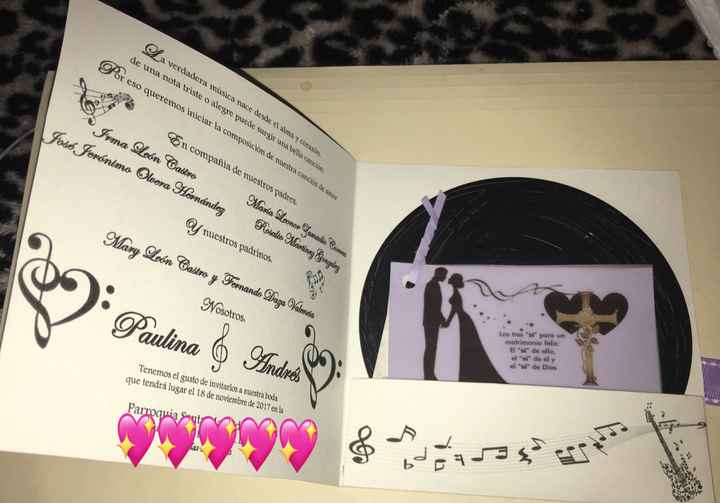 La verdadera música nace desde el alma y corazón,
de una nota triste o alegre puede surgir una bella canción.
Por eso queremos iniciar la composición de nuestra canción de amor
En compañía de nuestros padres.
Irma León Castro
José Jerónimo Olvera Hernández
María Leonor
Rosalio Martínez González
Y nuestros padrinos.
Mary León Castro y Fernando Daza Valencia
Nosotros.
Paulina Andrés
Tenemos el gusto de invitarlos a nuestra boda
que tendrá lugar el 18 de noviembre de 2017 en la
Parroquia
Los tres "sí" para un
matrimonio feliz:
El "sí" de ella,
el "sí" de él y
el "sí" de Dios